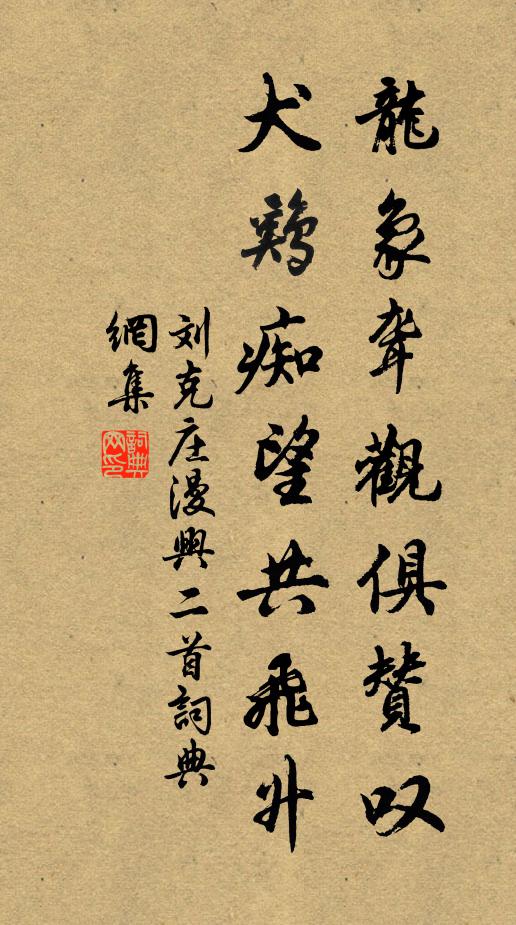 龍象聳觀俱贊叹
犬鷄痴望共飛升
刘克庄漫興二首詞典
網集
詞典網印